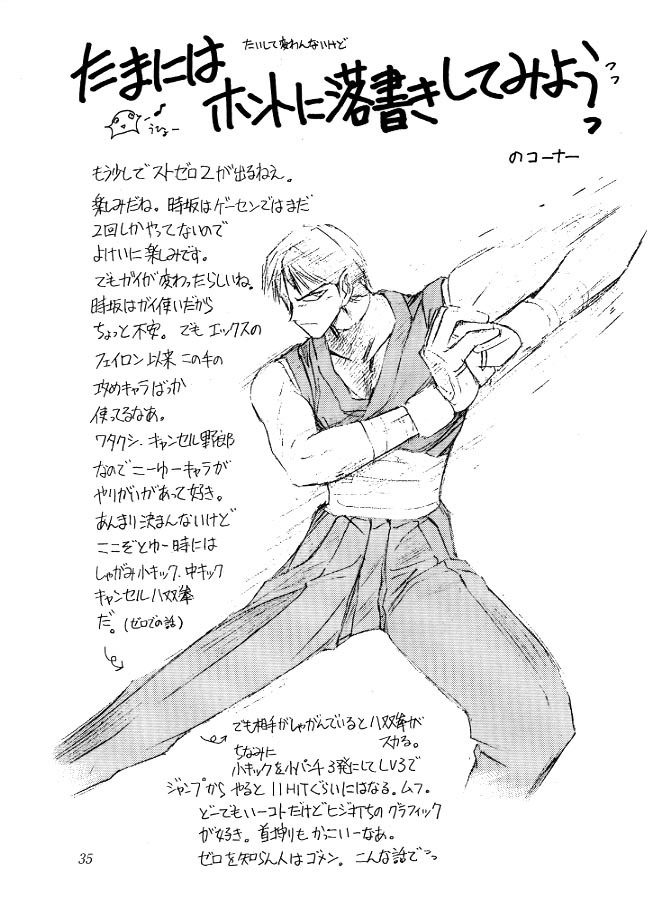 たいして変わんないけど
たまには
ホントに落書きしてみようっ
っっ
うひょー
のコーナー
もう少しでストゼロ2が出るねえ。
楽しみだね。時坂はゲーセンではまだ
2回しかやってないので
よけいに楽しみです。
でもガイが変わったらしいね。
時坂はガイ使いだから
ちょっと不安。でもエックスの
フェイロン以来この手の
攻めキャラばっか
使ってるなあ。
ワタクシ、キャンセル野郎
なのでこーゆーキャラが
やりがいがあって好き。
あんまり決まんないけど
ここぞとゆー時には
しゃがみ小キック、中キック
キャンセル八双拳
だ。(ゼロでの話)
でも相手がしゃがんでいると八双拳が
スカる。
ちなみに
小キックを小パンチ3発にしてLV3で
ジャンプからやると11HITぐらいにはなる。ムフ。
どーでもいーコトだけどヒジ打ちのグラフィック
が好き。首押りもかっこいーなあ。
ゼロを知らん人はゴメン。こんな話でっっ
35